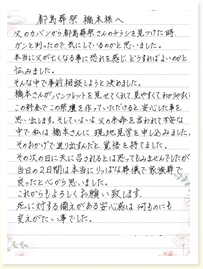 都島葬祭 橋本様へ
父のカバンから都島葬祭さんのチラシを見つけた時、
ガンと判ったので、気にしているのかと思いました。
本当に父が亡くなる事に恐れを感じどうすればよいのかと
悩みました。
そんな中で事前相談しようと決めました。
橋本さんが、パンフレットを見せてくれて見やすくてわかりやすく
この料金でこの祭壇を作っていただけると、安心した事を
思い出します。そしていよいよ父の余命を言われて不安な
中で私は橋本さんに現地見学を申し込みました。
そのおかげで送り出すんだと覚悟を持てました。
その次の日に天に召されるとは思ってもみませんでしたが
当日の2日間は本当にりっぱな葬儀で家族葬で
良ったと心から思いました。
これからもよろしくお願い致します。
死に対する備えがある安心感は何ものにも
変えがたい事でした。